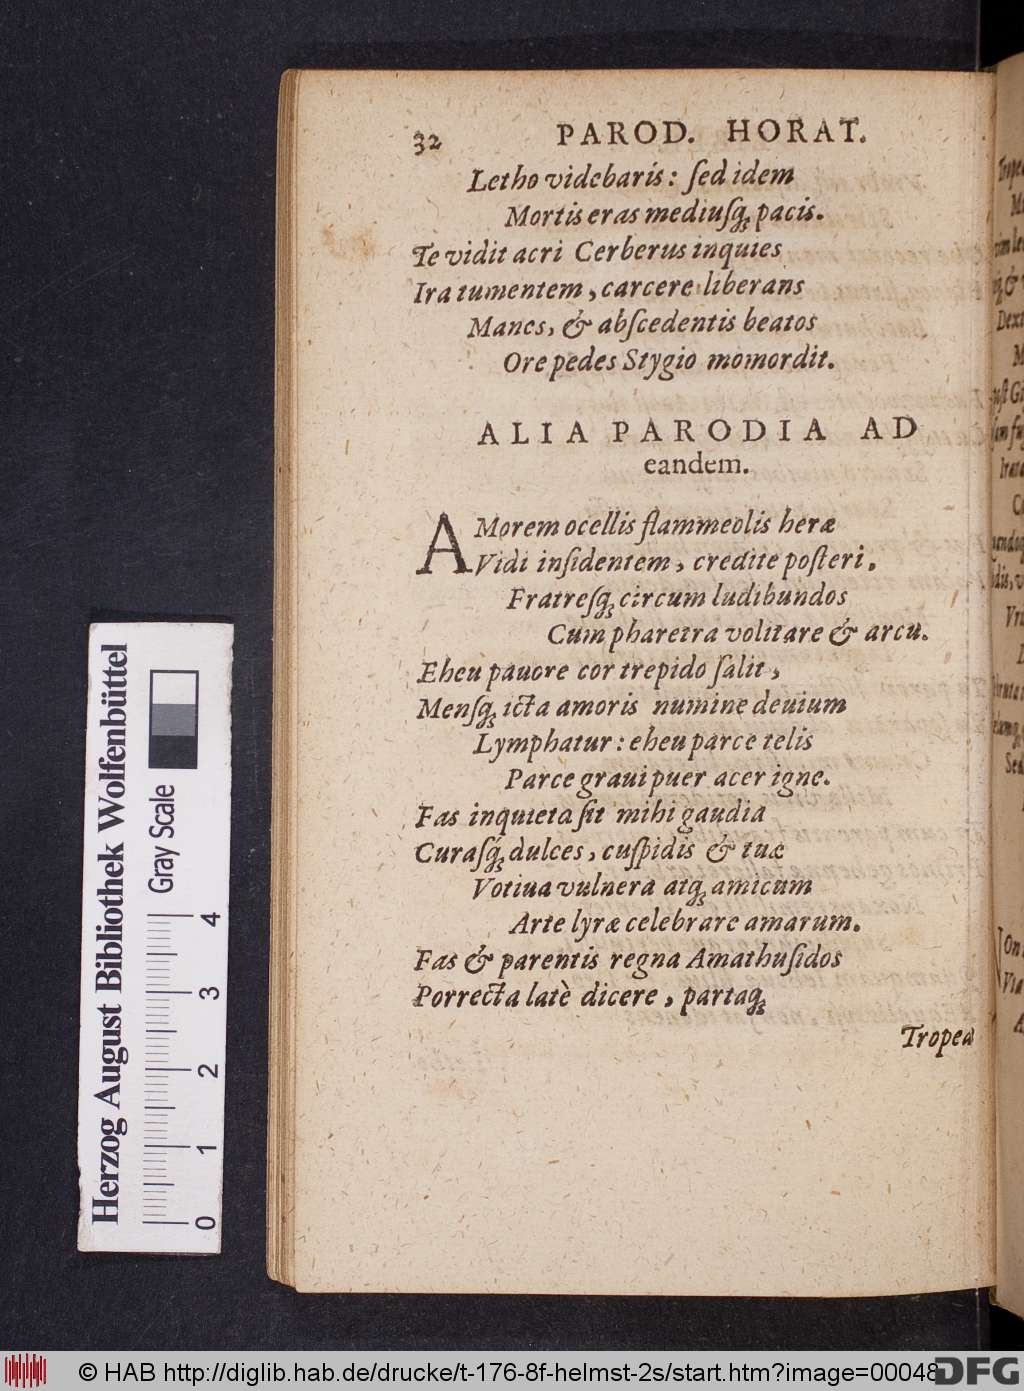 32 PAROD. HORAT.
Letho videbaris: ſed idem
Mortis eras mediuſq; pacis.
Te vidit acri Cerberus inquies
Ira tumentem, carcere liberans
Manes, & abſcedentis beatos
Ore pedes Stygio momordit.
ALIA PARODIA AD
eandem.
AMorem ocellis flammeolis heræ
Vidi inſidentem, credite poſteri,
Fratreſq; circum ludibundos
Cum pharetra volitare & arcu.
Eheu pauore cor trepido ſalit,
Menſq; icta amoris numine deuium
Lymphatur: eheu parce telis
Parce graui puer acer igne.
Fas inquieta ſit mihi gaudia
Curaſq́; dulces, cuſpidis & tuæ
Votiua vulnera atq; amicum
Arte lyræ celebrare amarum.
Fas & parentis regna Amathuſidos
Porrecta latè dicere, partaq;
Tropea
Herzog August Bibliothek Wolfenbüttel
Gray Scale
0 1 2 3 4
© HAB http://diglib.hab.de/drucke/t-176-8f-helmst-2s/start.htm?image=00048
DFG